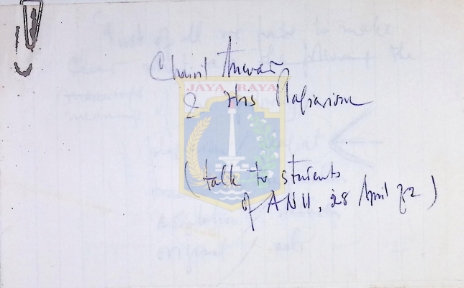 Chairil Anwar
& His Plagiarism
JAYA RAYA
(talk to students
of ANU, 28 April 72)